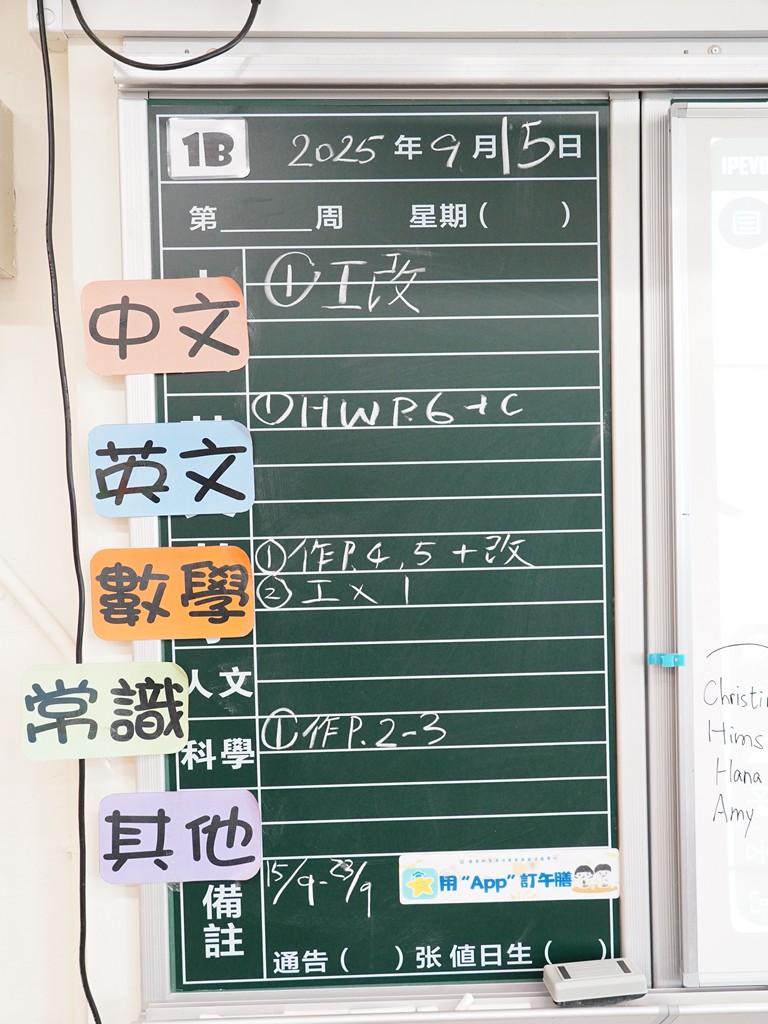 1B 2025 年 9 月 15 日
第______周 星期( )
中文 ① 工改
英文 ① HW P.6 + c
數學 ① 作 P.4, 5 + 改
② 工 x 1
人文
常識
科學 ① 作 P. 2-3
其他
備註 15/9 - 23/9
用 “App” 訂午膳
通告( )张 值日生( )
IPEVO
Christin
Hims
Hana
Amy